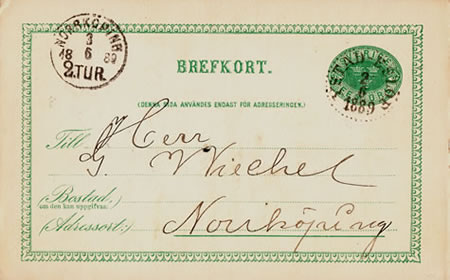 NORRKÖPING
3
6
18 89
2.TUR
BREFKORT.
(DENNA SIDA ANVÄNDES ENDAST FÖR ADRESSERINGEN.)
2
6
1889
Till Herr
G. Wiechel
(Bostad,
om den kan uppgifvas)
(Adressort:) Norrköping